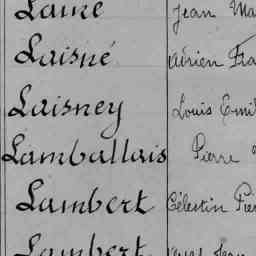 Lainé Jean Ma
Laisné Adrien Fra
Laisney Louis Emil
Lamballais Pierre
Lambert Célestin Pie
Lambert Jean